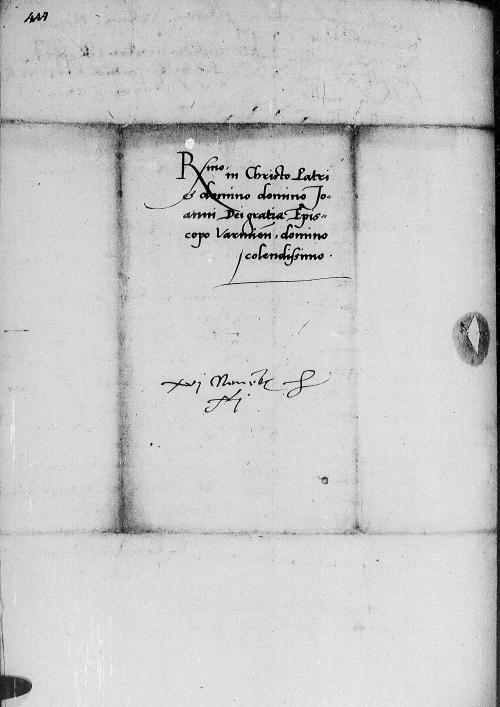 Rmo. in Christo Patri
et domino domino Jo-
anni Dei gratia Epis-
copo Varmien, domino
colendissimo.
xvj